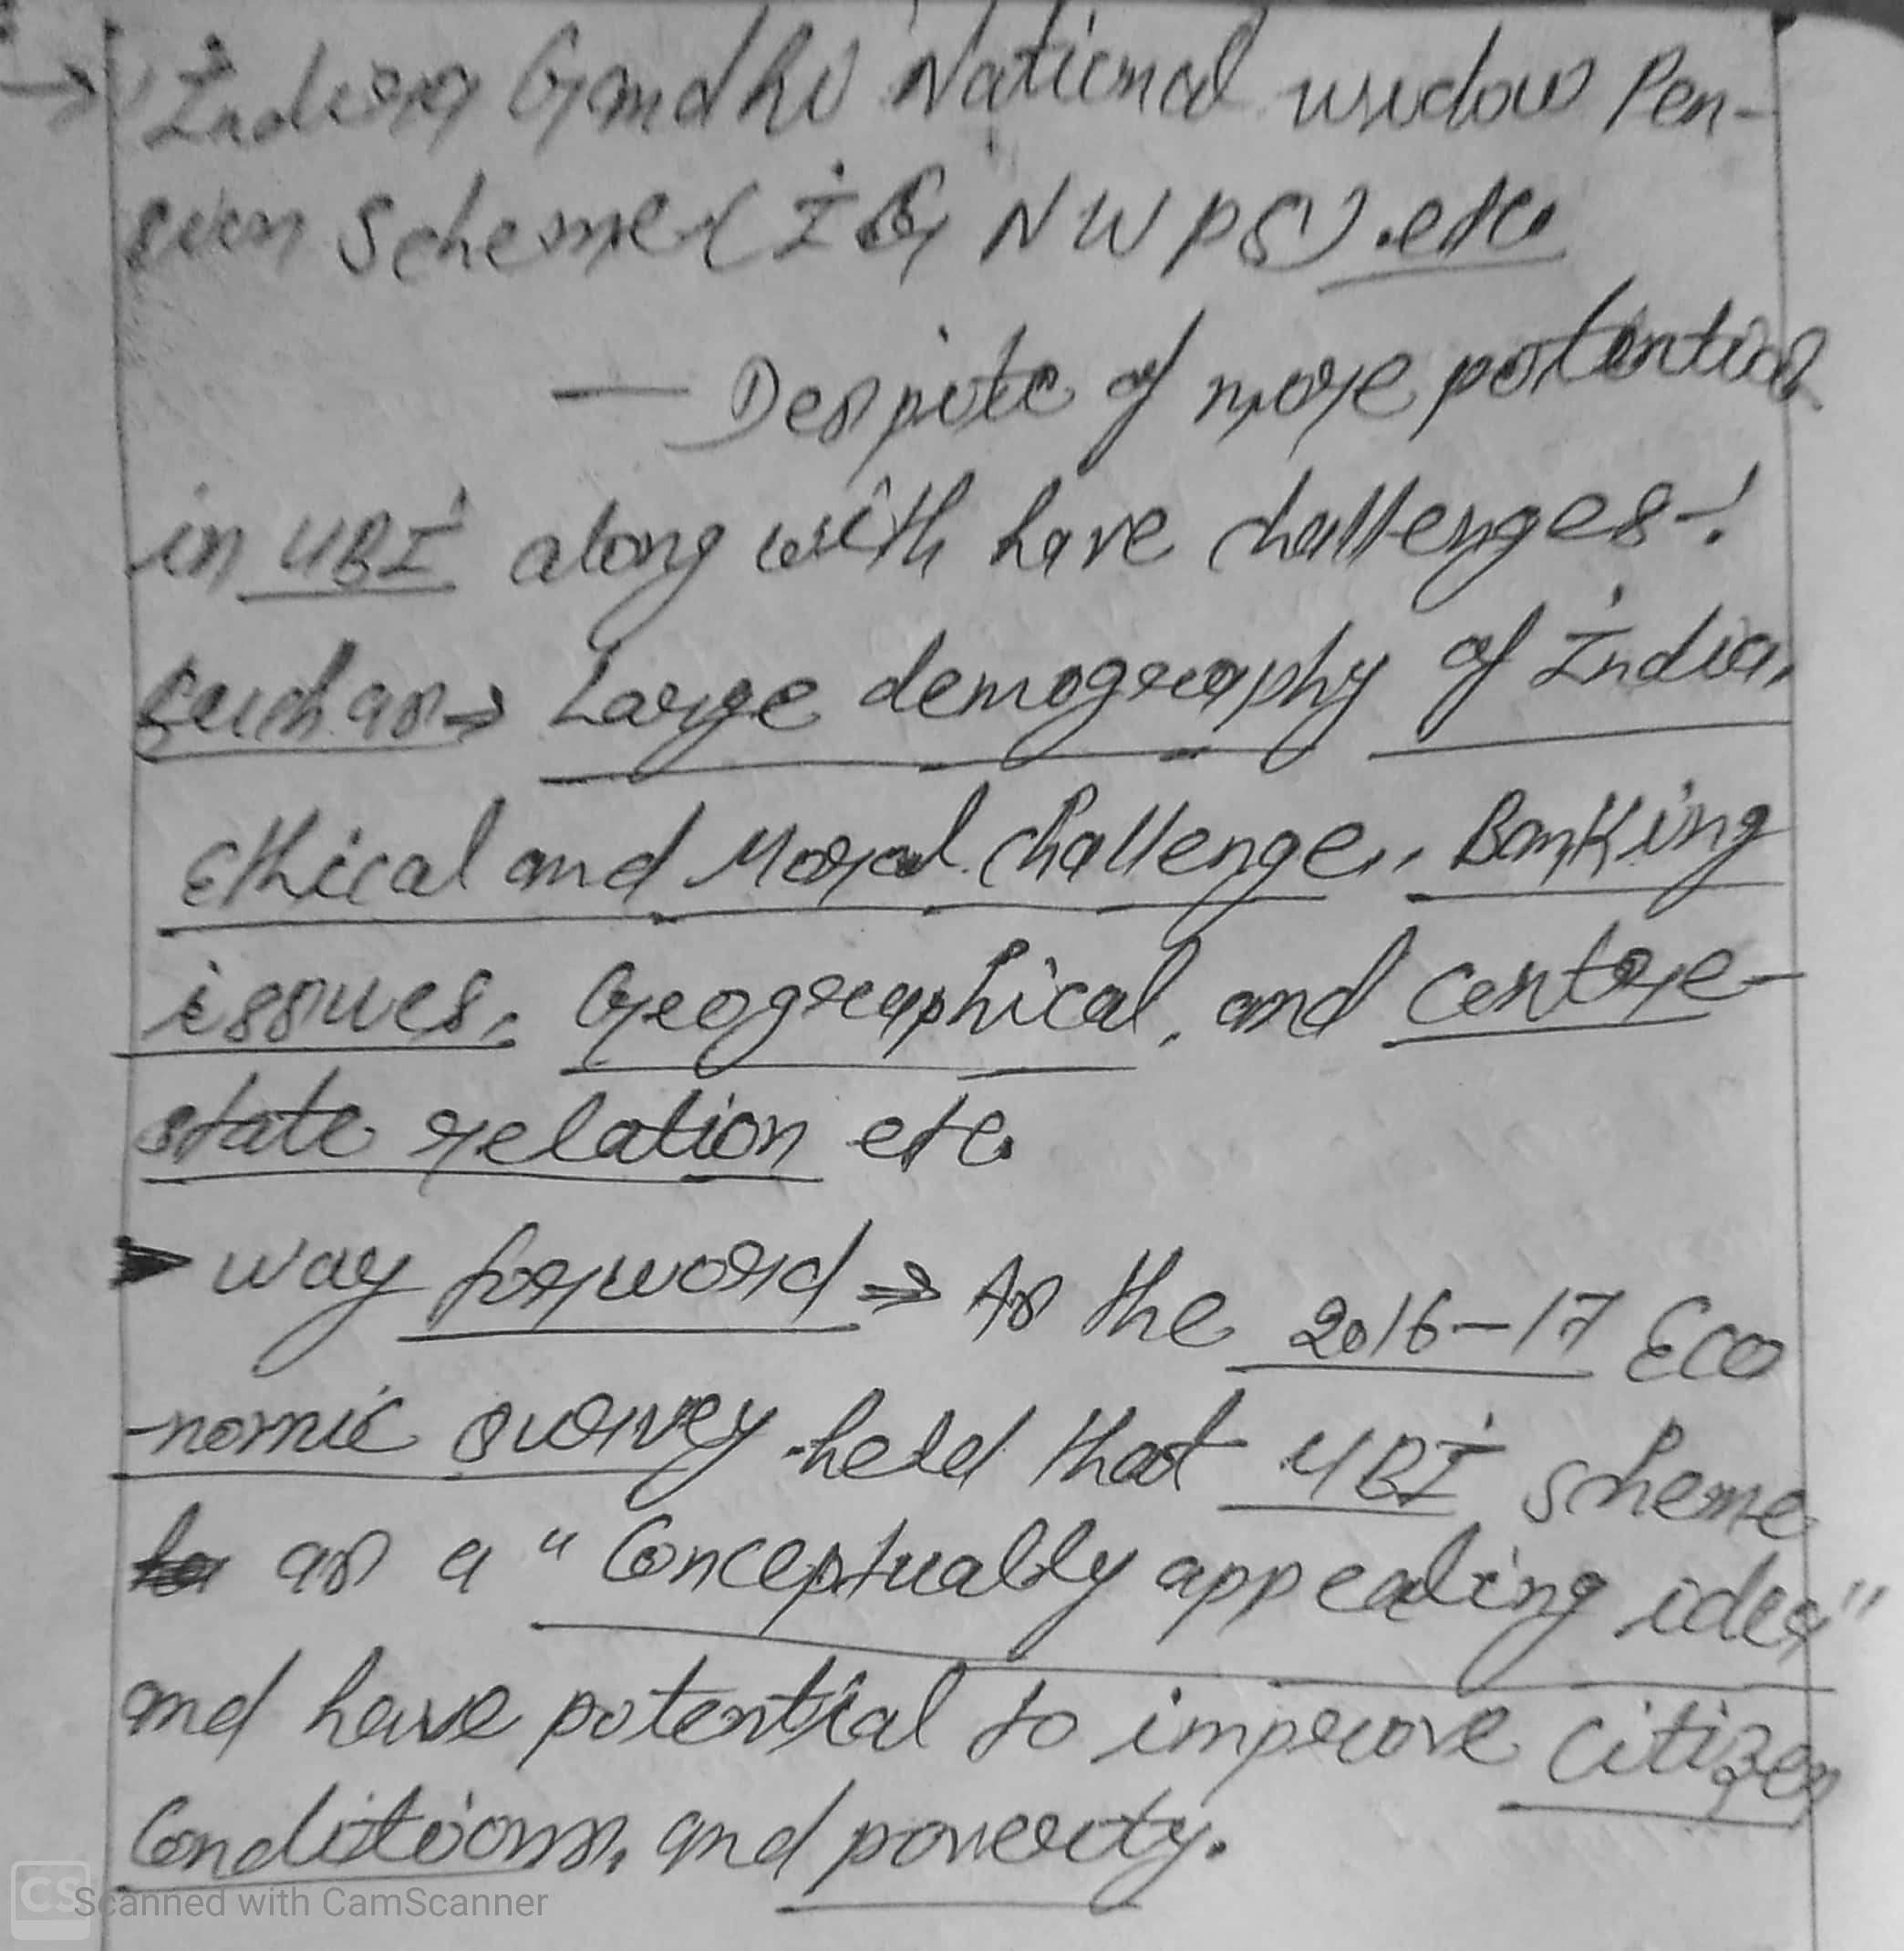 → Indira Gandhi National widow Pen-
sion Scheme (IGNWPS). etc.
— Despite of more potential
in UBI along with have challenges -!
such as → Large demography of India,
Ethical and Moral challenge, Banking
issues, Geographical, and Centre-
state relation etc.
► Way forword ⇒ As the 2016-17 Eco
-nomic survey held that UBI scheme
as a "Conceptually appealing idea"
and have potential to improve citizen
Conditions, and poverity.
CS Scanned with CamScanner